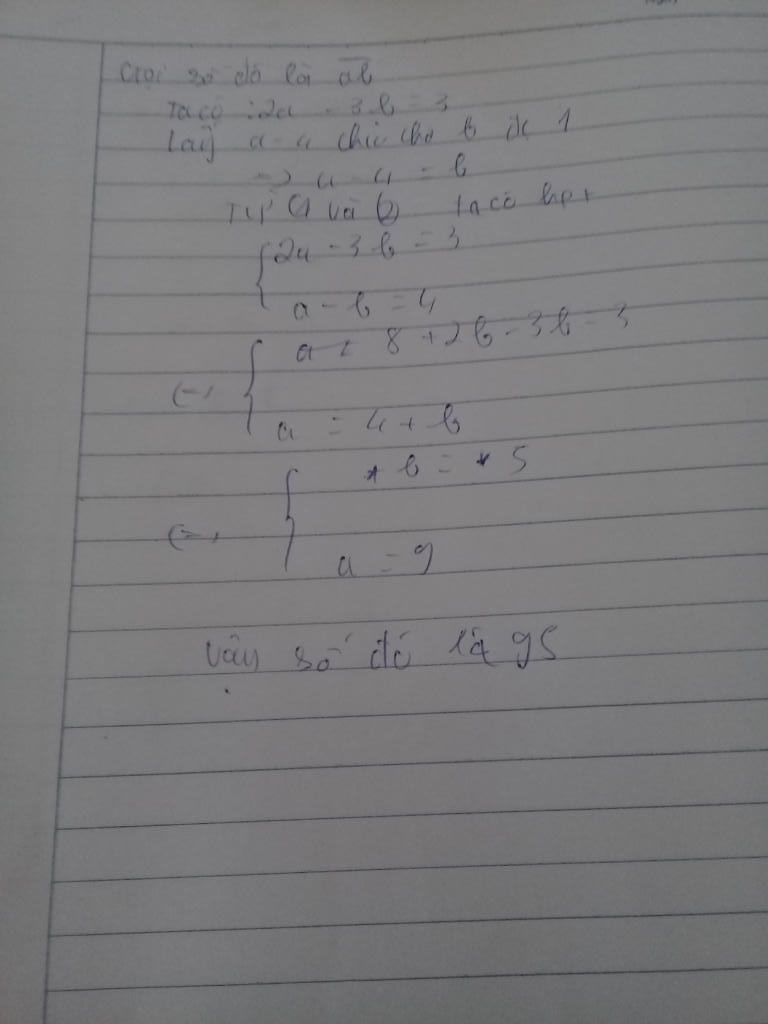 Gọi số đó là ab
Ta có : 2a - 3b = 3
Lấy a - 4 chia cho b đc 1
=> a - 4 = b
Từ (1 và (2) ta có hpt
{ 2a - 3b = 3
a - b = 4
(=) { 8 + 2b - 3b = 3
a = 4 + b
(=) { b = 5
a = 9
Vậy số đó là 95